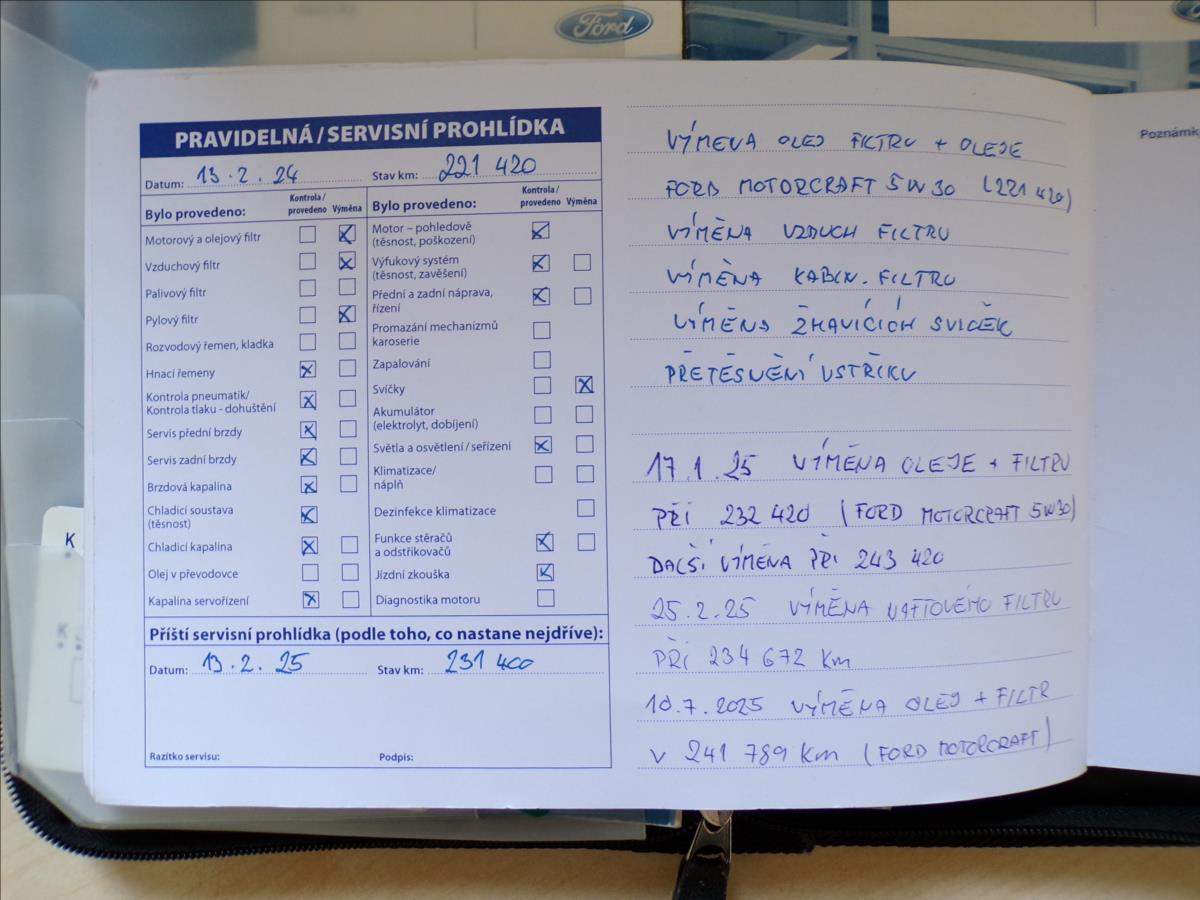 Ford
PRAVIDELNÁ / SERVISNÍ PROHLÍDKA
Datum: 13.2.24 Stav km: 221 420
Bylo provedeno: Kontrola / provedeno Výměna
Motorový a olejový filtr
Vzduchový filtr
Palivový filtr
Pylový filtr
Rozvodový řemen, kladka
Hnací řemeny
Kontrola pneumatik/
Kontrola tlaku - dohuštění
Servis přední brzdy
Servis zadní brzdy
Brzdová kapalina
Chladicí soustava
(těsnost)
Chladicí kapalina
Olej v převodovce
Kapalina servořízení
Bylo provedeno: Kontrola / provedeno Výměna
Motor – pohledově
(těsnost, poškození)
Výfukový systém
(těsnost, zavěšení)
Přední a zadní náprava,
řízení
Promazání mechanizmů
karoserie
Zapalování
Svíčky
Akumulátor
(elektrolyt, dobíjení)
Světla a osvětlení / seřízení
Klimatizace/
náplň
Dezinfekce klimatizace
Funkce stěračů
a odstřikovačů
Jízdní zkouška
Diagnostika motoru
Příští servisní prohlídka (podle toho, co nastane nejdříve):
Datum: 13.2.25 Stav km: 231 400
Razítko servisu: Podpis:
VÝMEVA OLEJ FILTRU + OLEJE
FORD MOTORCRAFT 5W30 (221 420)
VÝMĚNA VZDUCH FILTRU
VÝMĚNA KABIN. FILTRU
VÝMĚNA ŽHAVÍCÍCH SVIČEK
PŘETĚSNĚNÍ VSTŘIKU
17.1.25 VÝMĚNA OLEJE + FILTRU
PŘI 232 420 (FORD MOTORCRAFT 5W30)
DALŠÍ VÝMĚNA PŘI 243 420
25.2.25 VÝMĚNA NAFTOVÉHO FILTRU
PŘI 234 672 Km
10.7.2025 VÝMĚNA OLEJ + FILTR
V 241 789 Km (FORD MOTORCRAFT)
K
Poznámk